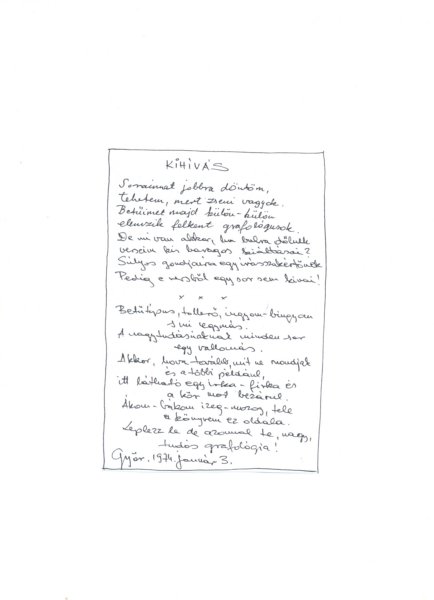 KIHÍVÁS
Soraimat jobbra döntöm,
tehetem, mert zseni vagyok.
Betűimet majd külön-külön
elemzik felkent grafológusok.
De mi van akkor, ha balra dőlnek
verseim kis baragos kiáltásai?
Súlyos gondjaira egy írásszakértőnek
Pedig e versből egy sor sem hívai!
x x x
Betűtípus, dőlő, ingyom-bingyom
s mi egymás.
A nagytudásúaknak minden sor
egy vallomás.
Akkor, hova tovább, mit ne mondjak
és a többi például,
itt látható egy irka-firka és
a kör most bezárul.
Ákom-bákom izeg-mozog, tele
a könyvem ez oldala.
Leplezz le de azonnal te, nagy,
tudós grafológia!
Győr. 1974. január 3.